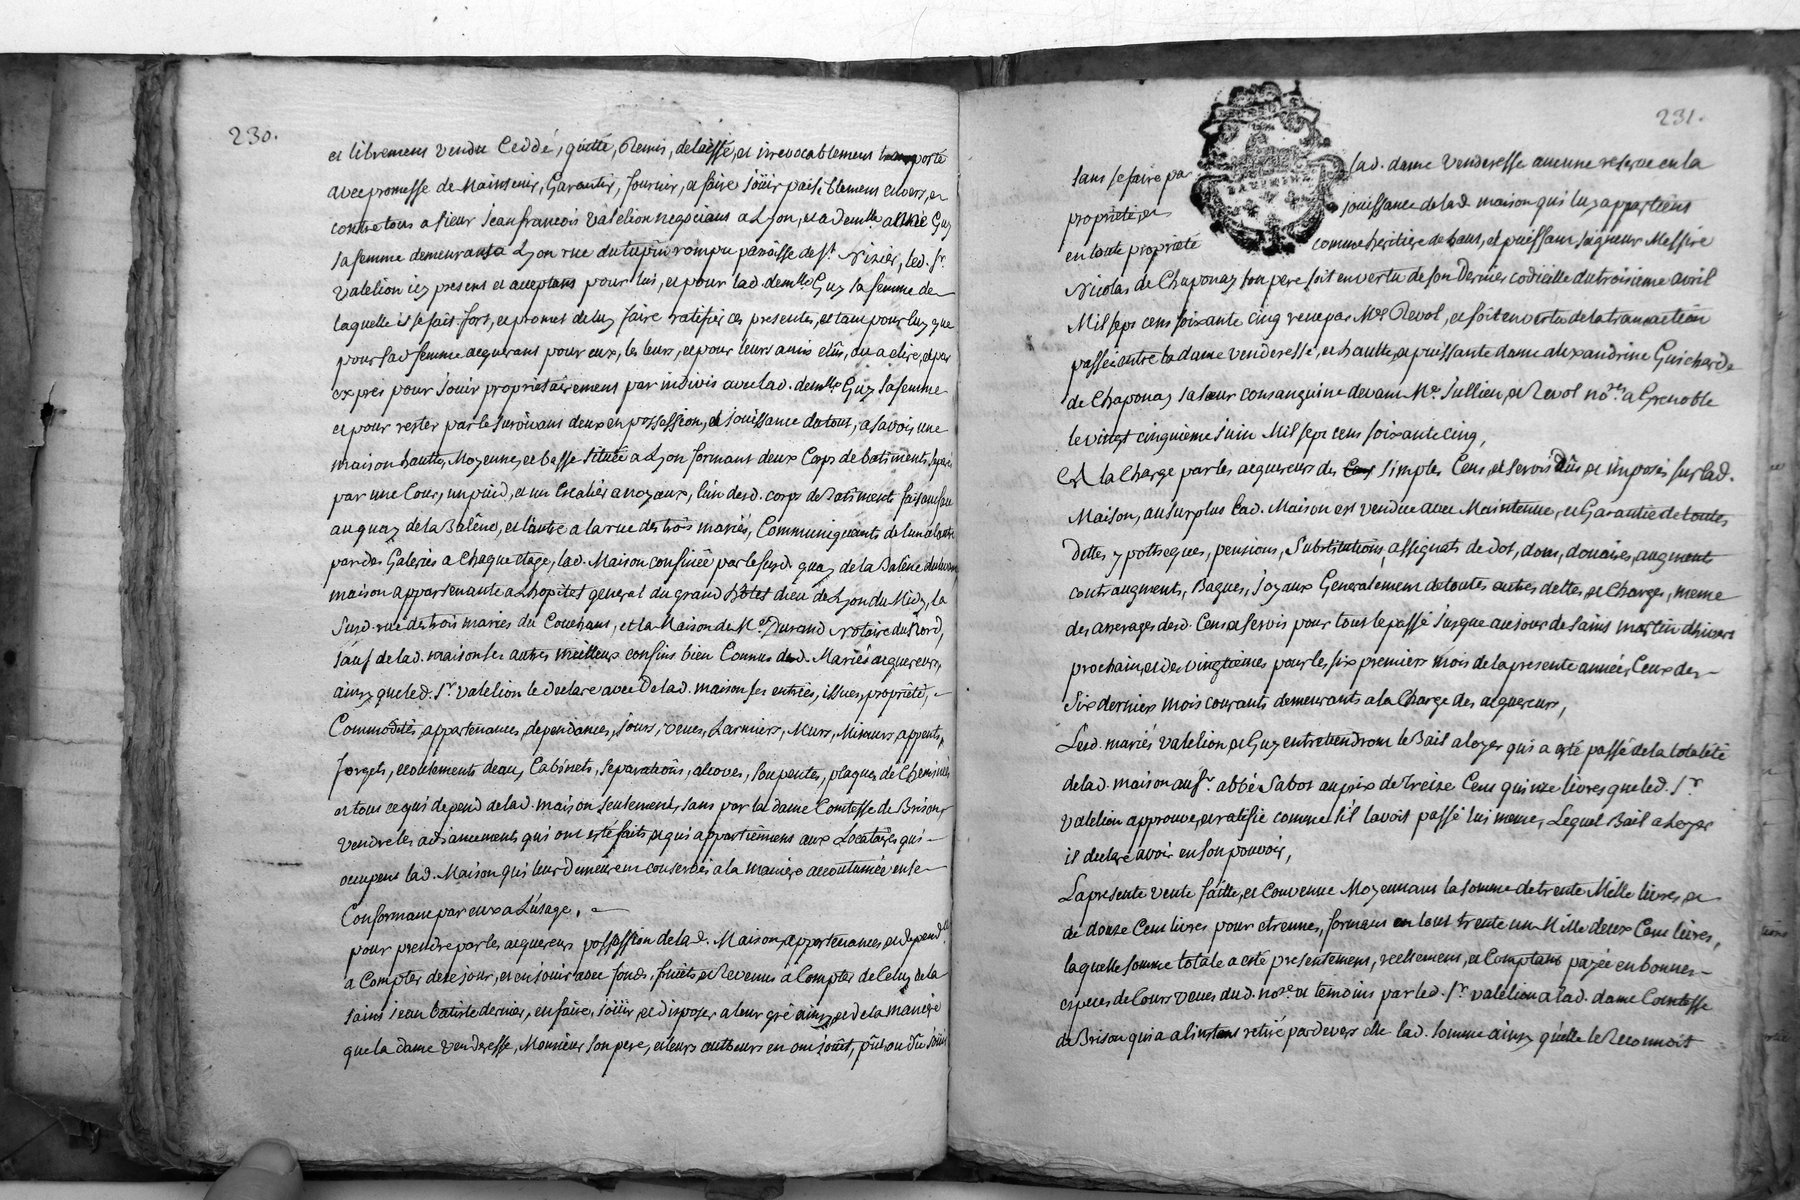 230.
et librement vendu Ceddé, quitté, Remis, delaissé, et irrevocablement transporté
avec promesse de Maintenir, Garantir, fournir, et faire joüir paisiblement envers, et
contre tous a sieur jean francois Valelion negociant a Lyon, et a demlle anne Guy
sa femme demeurants a Lyon rue du tupin rompu paroisse de st. Nizier, led. sr.
Valelion icy present et acceptant pour lui, et pour lad. demlle Guy sa femme de
laquelle il se fait fort, et promet de luy faire ratifier ces presentes, et tant pour luy que
pour sad. femme acquerant pour eux, les leurs, et pour leurs amis elûs, ou a elire, et par
exprès pour joüir proprietairement par indivis avec lad. demlle Guy sa femme
et pour rester par le survivant deux en possession, et joüissance du tout, a savoir une
maison hautte, Moyenne, et basse situëe a Lyon formant deux Corps de batiments separés
par une Cour, un puid, et un Escalier a noyaux, l'un desd. corps de Batiments faisant face
au quay de la Balêne, et l'autre a la rue des trois mariës, Communiquants de l'un a l'autre
par des Galeries a Chaque étage, lad. Maison confinée par le susd. quay de la Balêne du levant
maison appartenante a L'hopital general du grand hôtel dieu de Lyon du Midy, la
Susd. rue des trois maries du Couchant, et la Maison de Me. Durand Notaire du Nord,
sauf de lad. maison ses autres meilleurs confins bien Connus desd. Mariés acquereurs,
ainsy que led. sr. Valelion le declare avec De lad. maison ses entrées, issues, proprieté,
Commodités, appartenances, dependances, jours, veues, Larmiers, Murs, Mimurs, appents,
forgets, ecoulements deau, Cabinets, separations, alcoves, soupentes, plaques de Cheminées
et tout ce qui depend de lad. maison seulement, sans par la dame Comtesse de Brison
vendre les adjancements qui ont esté faits, et qui appartiennent aux Locataires qui
occupent lad. Maison qui leur demeurent conservés a la maniere accoutumée en se
Conformant par eux a L'usage.
pour prendre par les acquereurs possession de lad. Maison, appartenances, et depend.
a Compter de ce jour, et en joüir avec fonds, fruits, et Revenus a Compter de Celuy de la
saint jean Batiste dernier, en faire, joüir, et disposer a leur gré ainsy, et de la maniere
que la dame venderesse, Monsieur son pere, et leurs autheurs en ont joüit, pû ou dû joüir
231.
sans se faire par lad. dame venderesse aucune reserve en la
proprieté, et joüissance de lad. maison qui luy appartient
en toute proprieté comme heritiere de haut, et puissant seigneur Messire
Nicolas de Chaponay son pere soit en vertu de son dernier codicille du troisieme avril
Mil sept cent soixante cinq reçu par Me. Revol, et soit en vertu de la transaction
passée entre la dame venderesse, et haulte, et puissante dame alexandrine Guicharde
de Chaponay sa sœur consanguine devant Me. Jullien, et Revol nores. a Grenoble
le vingt cinquieme juin Mil sept cent soixante cinq,
Et a la Charge par les acquereurs des simples Cens, et servis dûs et imposés sur lad.
Maison, au surplus lad. Maison est vendue avec Maintenue, et Garantie de toutes
dettes, ypotheques, pensions, Substitutions, assignats de dot, dons, douaires, augment
contraugment, Bagues, Joyaux Generalement de toutes autres dettes, et Charges, meme
des arrerages desd. Cens, et servis pour tout le passé jusque au jour de saint martin d'hiver
prochain, et des vingtiemes pour les six premiers mois de la presente année, Ceux des
six derniers mois courants demeurants a la Charge des acquereurs,
Lesd. mariés Valelion, et Guy entretiendront le Bail a loyer qui a eté passé de la totalité
de lad. maison au sr. abbé Sabot au prix de treize Cent quinze livres que led. Sr.
Valelion approuve, et ratifie comme s'il l'avoit passé lui meme, Lequel Bail a Loyer
il declare avoir en son pouvoir,
La presente vente faitte, et Convenue Moyennant la somme de trente Mille livres, et
de douze Cent livres pour etrennes, formant en tout trente un Mille deux Cent livres,
laquelle somme totale a esté presentement, reellement, et Comptant payée en bonnes
especes de Cours veues dud. nore. et temoins par led. sr. Valelion a lad. dame Comtesse
de Brison qui a a l'instant retiré pardevers elle lad. somme ainsy qu'elle le Reconnoit